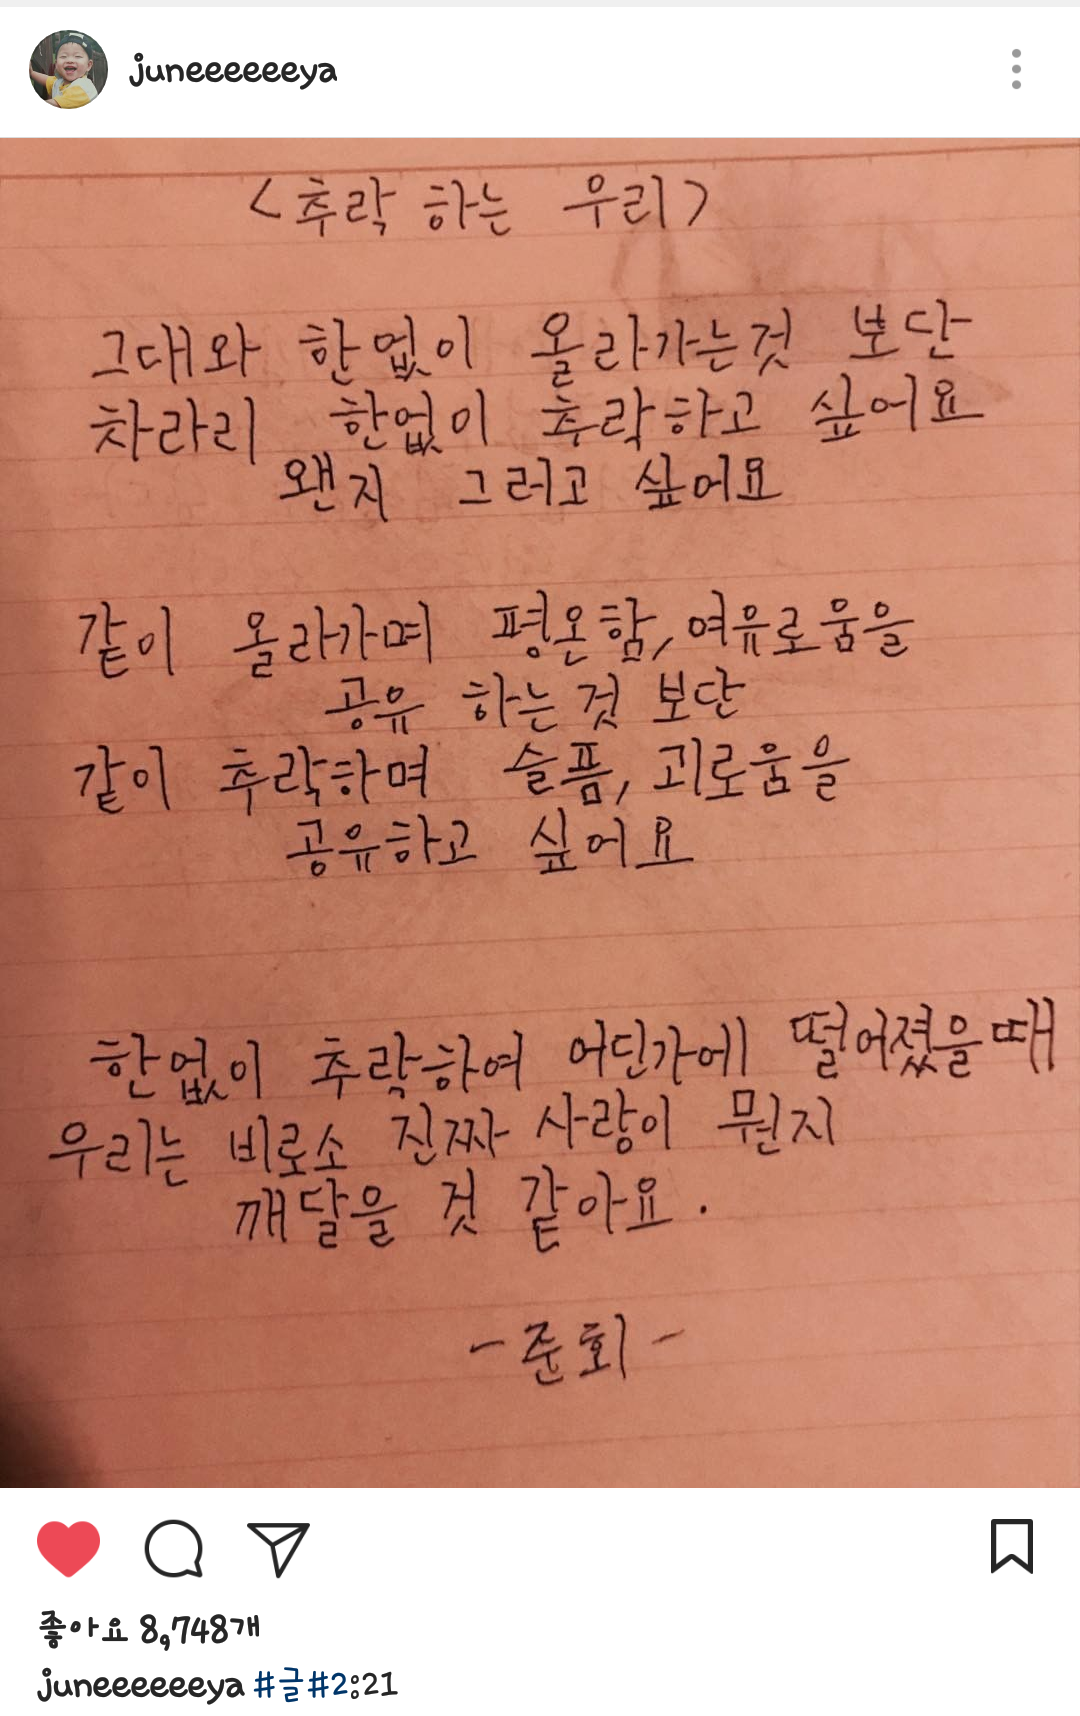 juneeeeeeya
<추락 하는 우리>
그대와 한없이 올라가는것 보단
차라리 한없이 추락하고 싶어요
왠지 그러고 싶어요
같이 올라가며 평온함, 여유로움을
공유 하는것 보단
같이 추락하며 슬픔, 괴로움을
공유하고 싶어요
한없이 추락하여 어딘가에 떨어졌을때
우리는 비로소 진짜 사랑이 뭔지
깨달을 것 같아요.
-준회-
좋아요 8,748개
juneeeeeeya #글#2:21